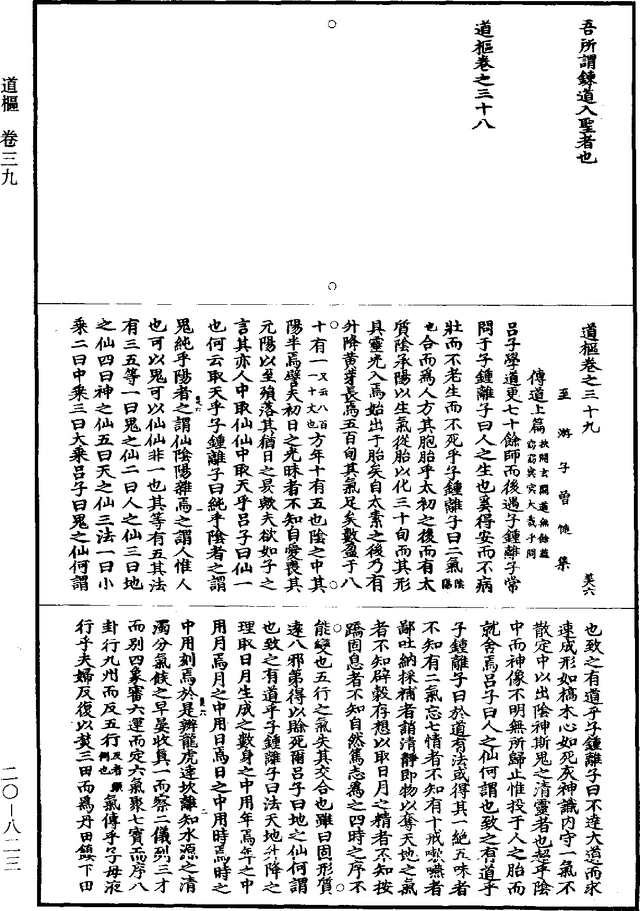 吾所謂鍊道入聖者也
道樞卷之三十八
道樞卷之三十九 笑六
至游子曾慥集
傳道上篇 扶開玄關道無餘蘊 窈窈冥冥大哉予問
呂子學道更七十餘師而後遇子鍾離子常
問于子鍾離子曰人之生也奚得安而不病
壯而不老生而不死乎子鍾離子曰二氣陰陽
也合而爲人方其胞胎乎太初之後而有太
質陰承陽以生氣從胎以化三十旬而其形
具靈光入焉始出于胎矣自太素之後乃有
升降黃芽長焉五百旬其氣足矣數盈于八
十有一又云八百一十丈也方年十有五也陰之中其
陽半焉譬夫初日之光昧者不知自愛喪其
元陽以至殞落其猶日之昃歟夫欲如子之
言其亦人中取仙仙中取天乎呂子曰仙一
也何云取天乎子鍾離子曰純乎陰者之謂
鬼純乎陽者之謂仙陰陽雜焉之謂人惟人
也可以鬼可以仙仙非一也其等有五其法
有三五等一曰鬼之仙二曰人之仙三曰地
之仙四曰神之仙五曰天之仙三法一曰小
乘二曰中乘三曰大乘呂子曰鬼之仙何謂
也致之有道乎子鍾離子曰不達大道而求
速成形如槁木心如死灰神識內守一氣不
散定中以出陰神斯鬼之清靈者也超乎陰
中而神像不明無所歸止惟投于人之胎而
就舍焉呂子曰人之仙何謂也致之有道乎
子鍾離子曰於道有法或得其一絕五味者
不知有二氣忘七情者不知有十戒漱嚥者
鄙吐納採補者誚清靜即物以奪天地之氣
者不知辟穀存想以取日月之精者不知按
蹻固息者不知自然篤志爲之四時之序不
能變也五行之氣失其交合也雖曰固形質
違八邪第得以賒死爾呂子曰地之仙何謂
也致之有道乎子鍾離子曰法天地升降之
理取日月生成之數身之中用年焉年之中
用月焉月之中用日焉日之中用時焉時之
中用刻焉於是辨龍虎達坎離知水源之清
濁分氣候之早晏收真一而察二儀列三才
而別四象審六運而定六氣聚七寶而序八
卦行九州而反五行反者顛倒也氣傳乎子母液
行乎夫婦反復以焚三田而爲丹田鎮下田
道樞 卷三九
二〇—八二三